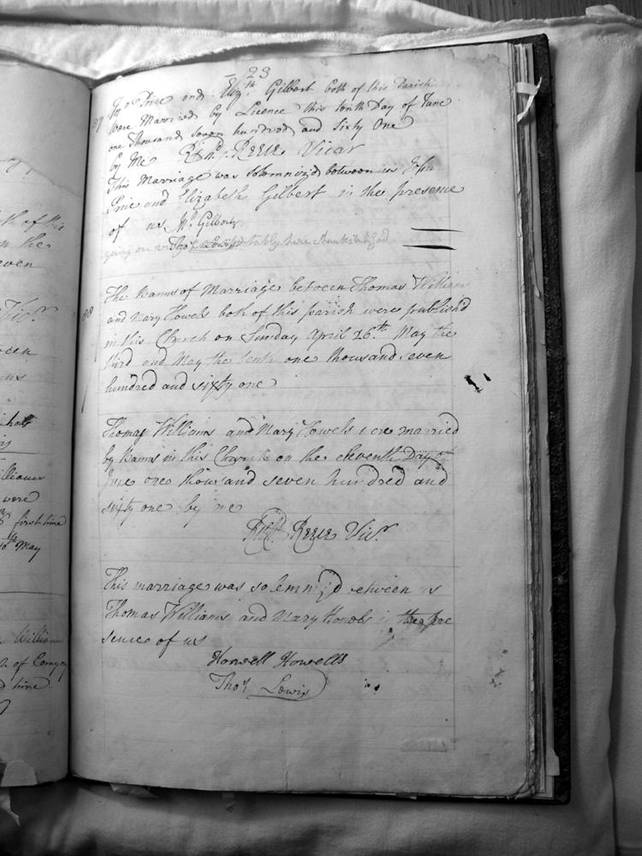 23
Jno Price and Elizth Gilbert both of this Parish
were Married by Licence this tenth Day of June
one Thousand seven hundred and Sixty One
by Me Richd Reeve Vicar
This Marriage was Solemniz'd between us John
Price and Elizabeth Gilbert in the presence
of us Wm Gilbert
Thos Lewis
The Banns of Marriage between Thomas William
and Mary Howels both of this parish were publishd
in this Church on Sunday April 26th May the
third and May the tenth one thousand seven
hundred and sixty one
Thomas Williams and Mary Howels were married
by Banns in this Church on the eleventh Day of
June one thousand seven hundred and
sixty one by me
Richd Reeve Vicr
This marriage was solemnizd between us
Thomas Williams and Mary Howels in the pre
sence of us
Howell Howells
Thos Lewis
th of the
n the
even
Vicr
een
us
half
is
illiams
were
first time
10th May
William
h of
d time